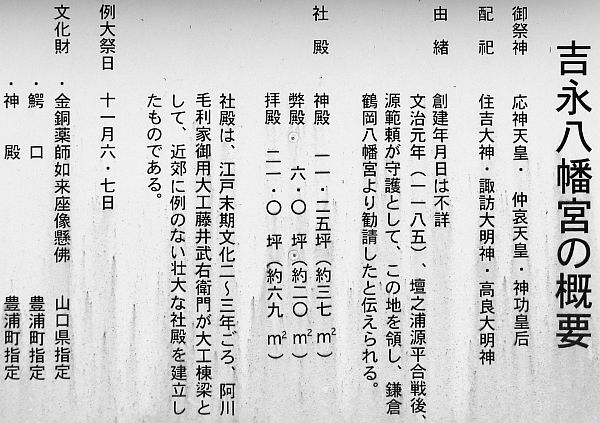 吉永八幡宮の概要
御祭神　応神天皇・仲哀天皇・神功皇后
配祀　住吉大神・諏訪大明神・高良大明神
由緒　創建年月日は不詳
文治元年（一一八五）、壇之浦源平合戦後、
源範頼が守護として、この地を領し、鎌倉
鶴岡八幡宮より勧請したと伝えられる。
社殿　神殿　一一・二五坪（約三七㎡）
弊殿　六・〇坪（約二〇㎡）
拝殿　二一・〇坪（約六九㎡）
社殿は、江戸末期文化二～三年ごろ、阿川
毛利家御用大工藤井武右衛門が大工棟梁と
して、近郊に例のない壮大な社殿を建立し
たものである。
例大祭日　十一月六・七日
文化財　・金銅薬師如来座像懸佛　山口県指定
・鰐口　豊浦町指定
・神殿　豊浦町指定